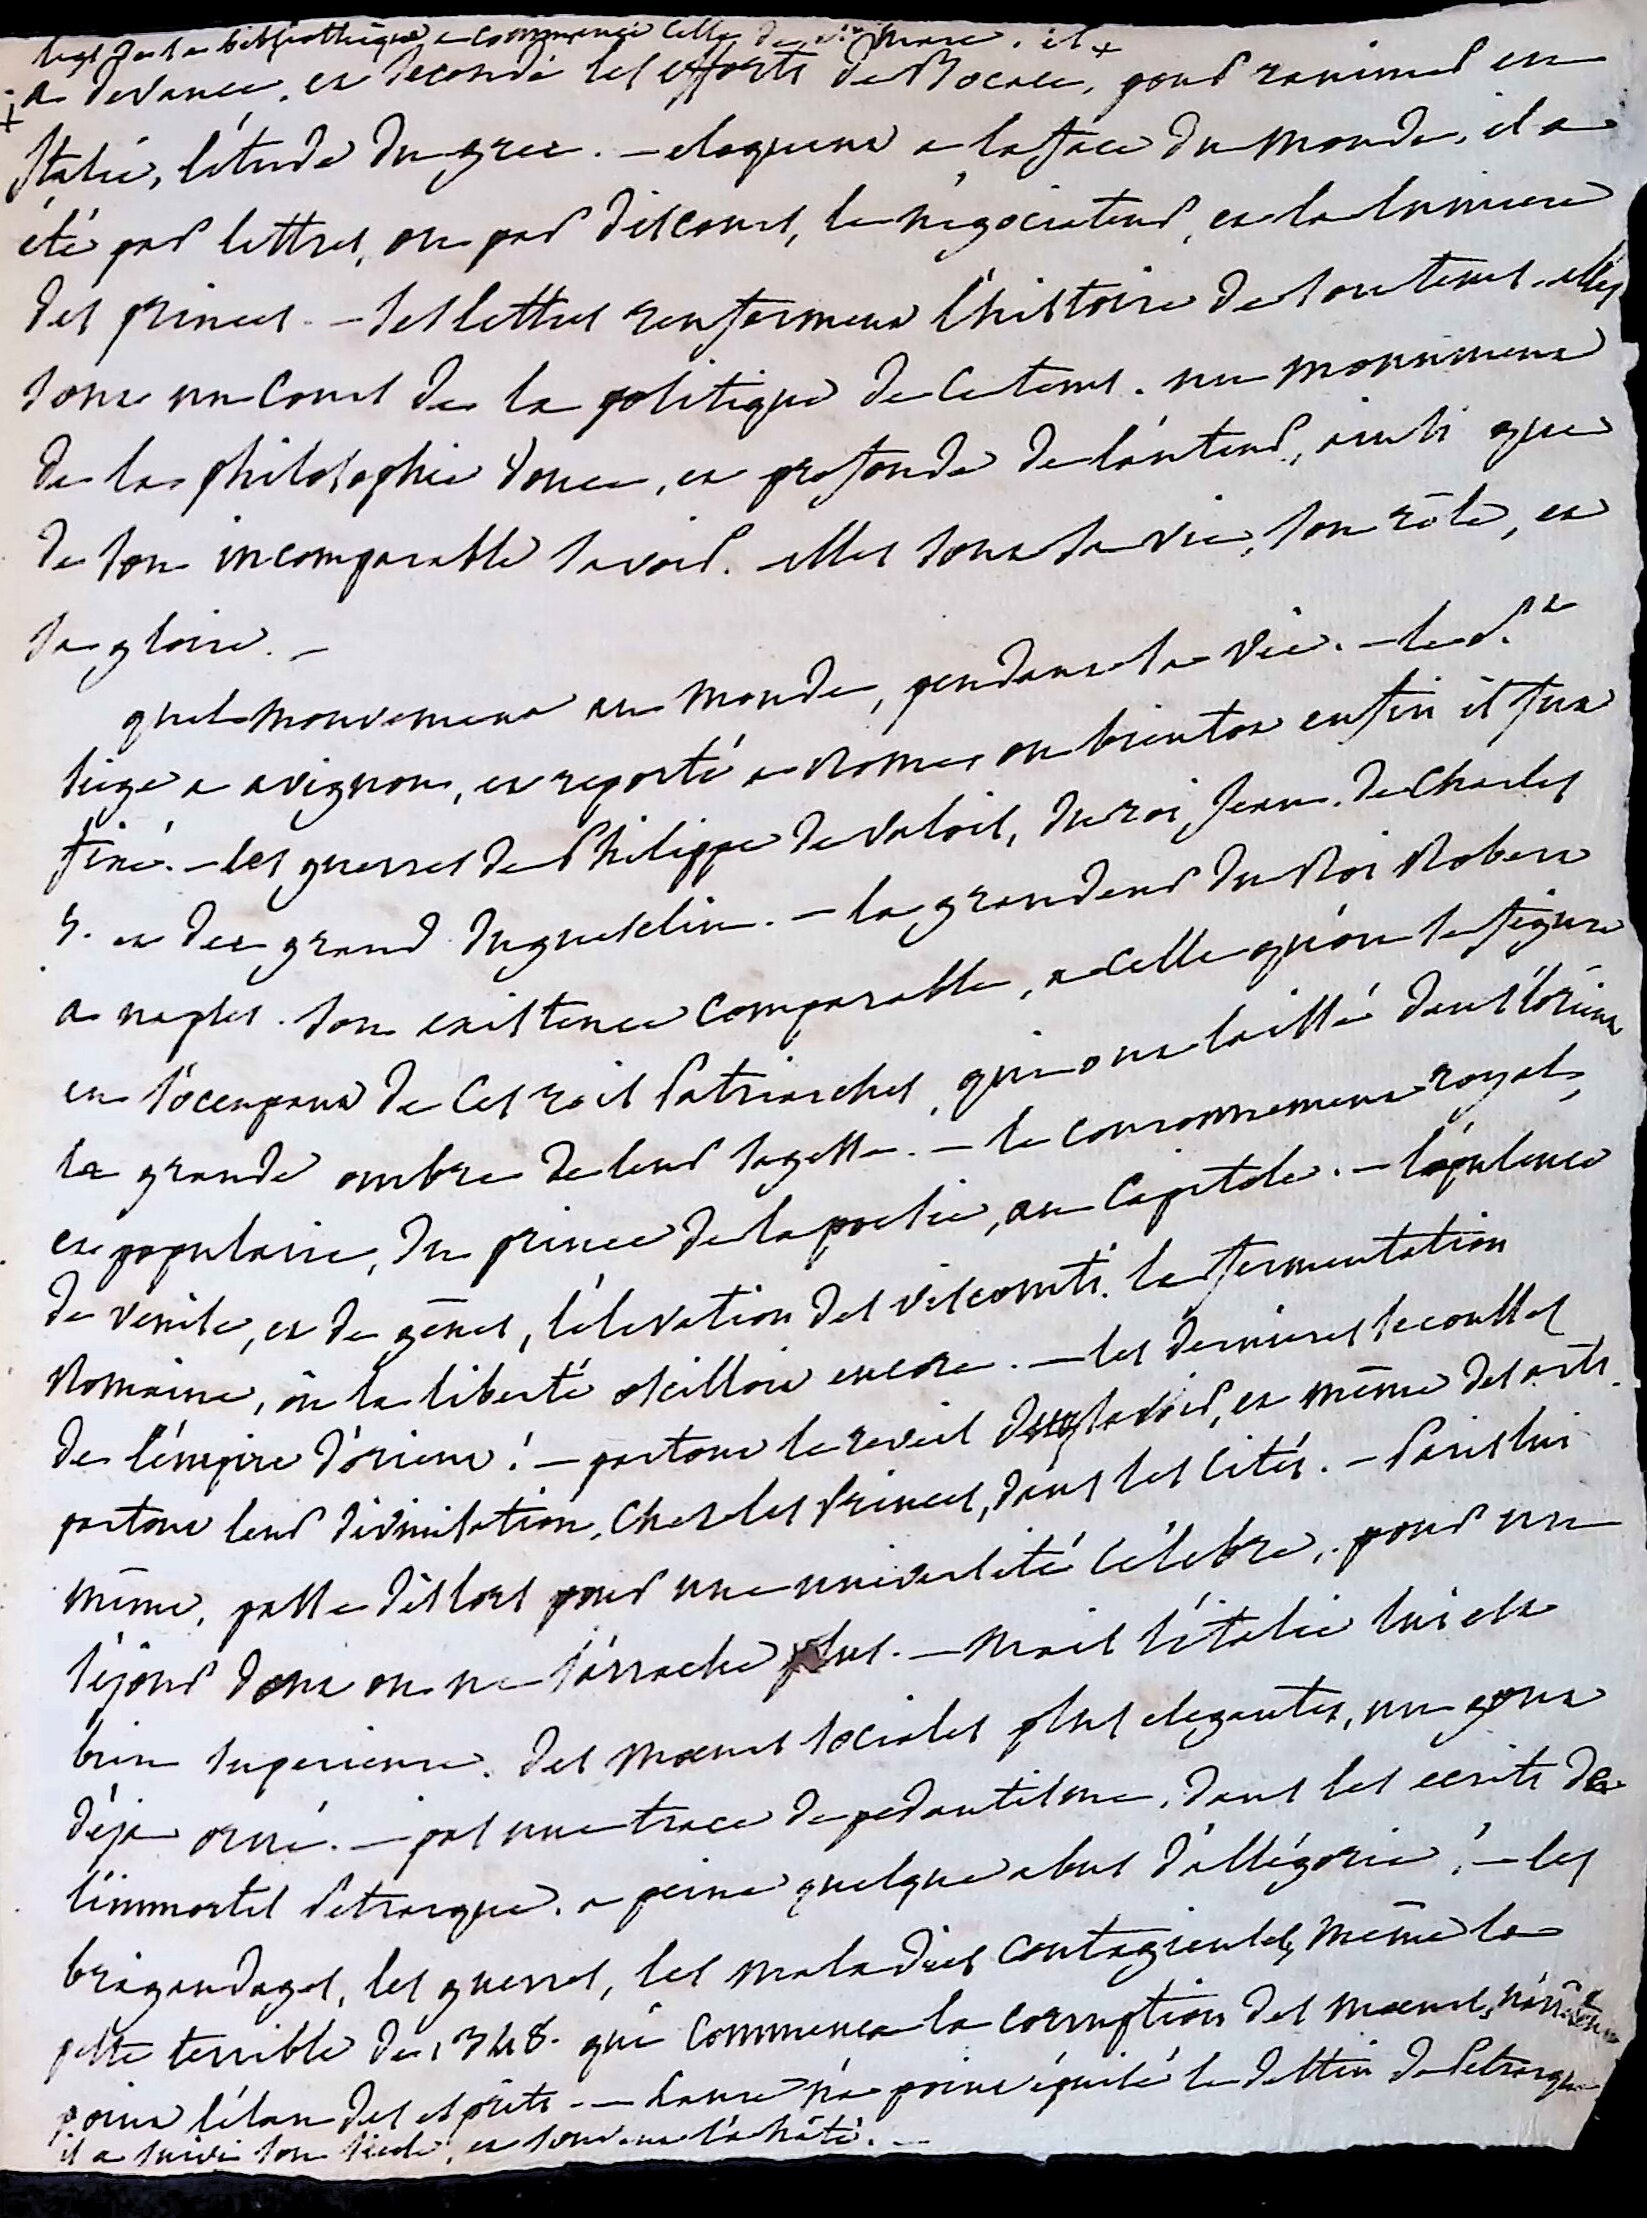 legs de sa bibliothèque a commencé celle de st marc. il +
+ a devancé, et secondé les efforts de Bocace, pour ranimer en
Italie, l'étude du grec. — eloquent a la face du monde, il a
été par lettres, ou par discours, le négociateur, et la lumiere
des princes. — ses lettres renferment l'histoire de son tems. elles
sont un cours de la politique de ce tems. un monument
de la philosophie douce, et profonde de l'auteur, ainsi que
de son incomparable savoir. elles sont sa vie, son rôle, et
sa gloire. —
quel mouvement au monde, pendant sa vie. — le st
siege a avignon, et reporté a Rome ou bientot enfin il fut
fixé. — les guerres de Philippe de valois, du roi Jean. de Charles
5. et de grand duguesclin. — la grandeur du Roi Robert
a naples. son existence comparable, a celle qu'on se figure
en s'occupant de ces rois Patriarches, qui ont laissé dans l'orient
la grande ombre de leur sagesse. — le couronnement royal,
et populaire, du prince de la poesie, au capitole. — l'opulence
de venise, et de gênes, l'élevation des viscomti. la fermentation
Romaine, où la liberté oscilloit encore. — les dernieres secousses
de l'empire d'orient! — partout le reveil du savoir, et même des arts.
partout leur divinisation, chez les Princes, dans les cités. — Paris lui
même, passe dès lors pour une université célebre, pour un
séjour dont on ne s'arrache plus. — mais l'italie lui est
bien superieure. des moeurs sociales plus elegantes, un gout
déja orné. — pas une trace de pedantisme, dans les ecrits de
l'immortel Petrarque. a peine quelque abus d'allégorie! — les
brigandages, les guerres, les maladies contagieuses, même la
peste terrible de 1348. qui commença la corruption des moeurs,
point l'élan des esprits. — Laure n'a point épuisé le destin de Petrarque
il a suivi son siecle, et souvent l'a hâté. —